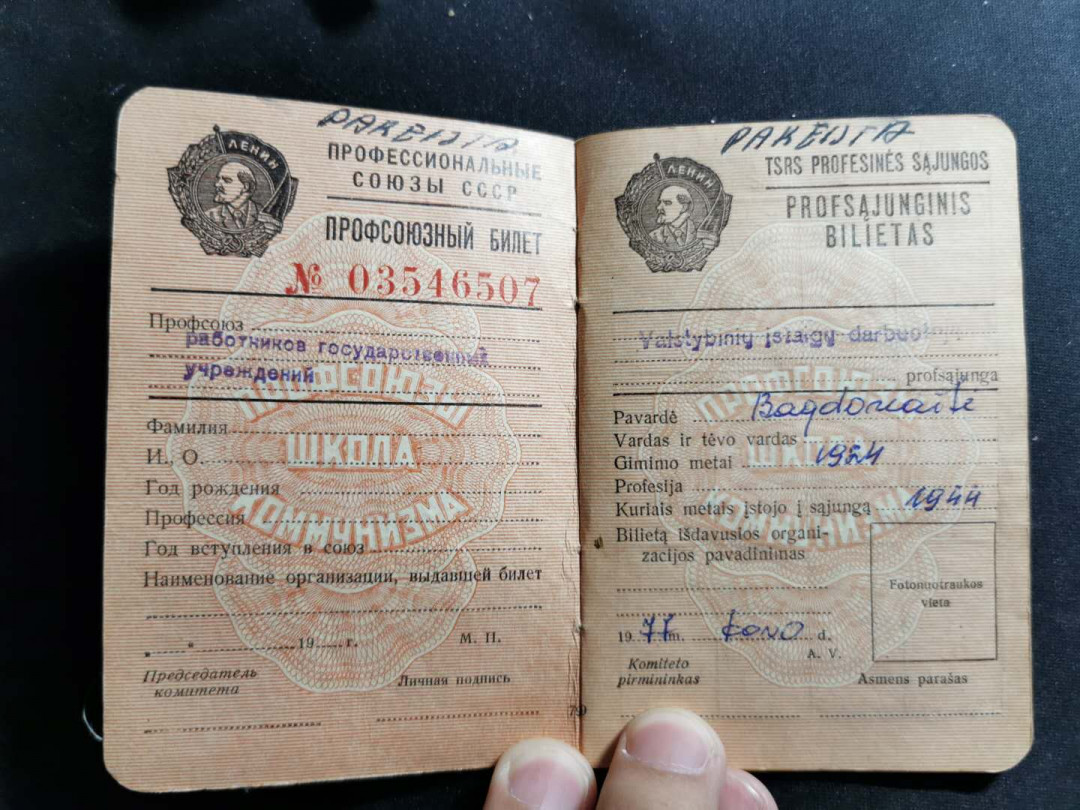 РАКЕЛТА
ЛЕНИН
ПРОФЕССИОНАЛЬНЫЕ
СОЮЗЫ СССР
ПРОФСОЮЗНЫЙ БИЛЕТ
№ 03546507
Профсоюз
работников государственный
учреждений
ПРОФСОЮЗЫ
Фамилия
ШКОЛА
И. О.
Год рождения
КОММУНИЗМА
Профессия
Год вступления в союз
Наименование организации, выдавшей билет
" " 19 г. М. П.
Председатель
комитета
Личная подпись
79
ЛЕНИН
TSRS PROFESINĖS SĄJUNGOS
PROFSĄJUNGINIS
BILIETAS
Valstybinių įstaigų
profsąjunga
ПРОФСОЮЗЫ
Pavardė Bagdonaitė
Vardas ir tėvo vardas
ШКОЛА
Gimimo metai 1924
Profesija
КОММУНИЗМА
Kuriais metais įstojo į sąjungą 1944
Bilietą išdavusios organi-
zacijos pavadinimas
Fotonuotraukos
vieta
1977 m. kovo d.
A. V.
Komiteto
pirmininkas
Asmens parašas